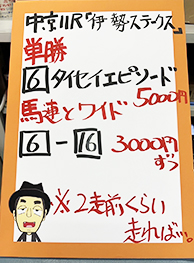 中京11R「伊勢ステークス」
単勝
6 タイセイエピソード
5000円
馬連とワイド
6－16 3000円
ずつ
※2走前くらい
走れば…。